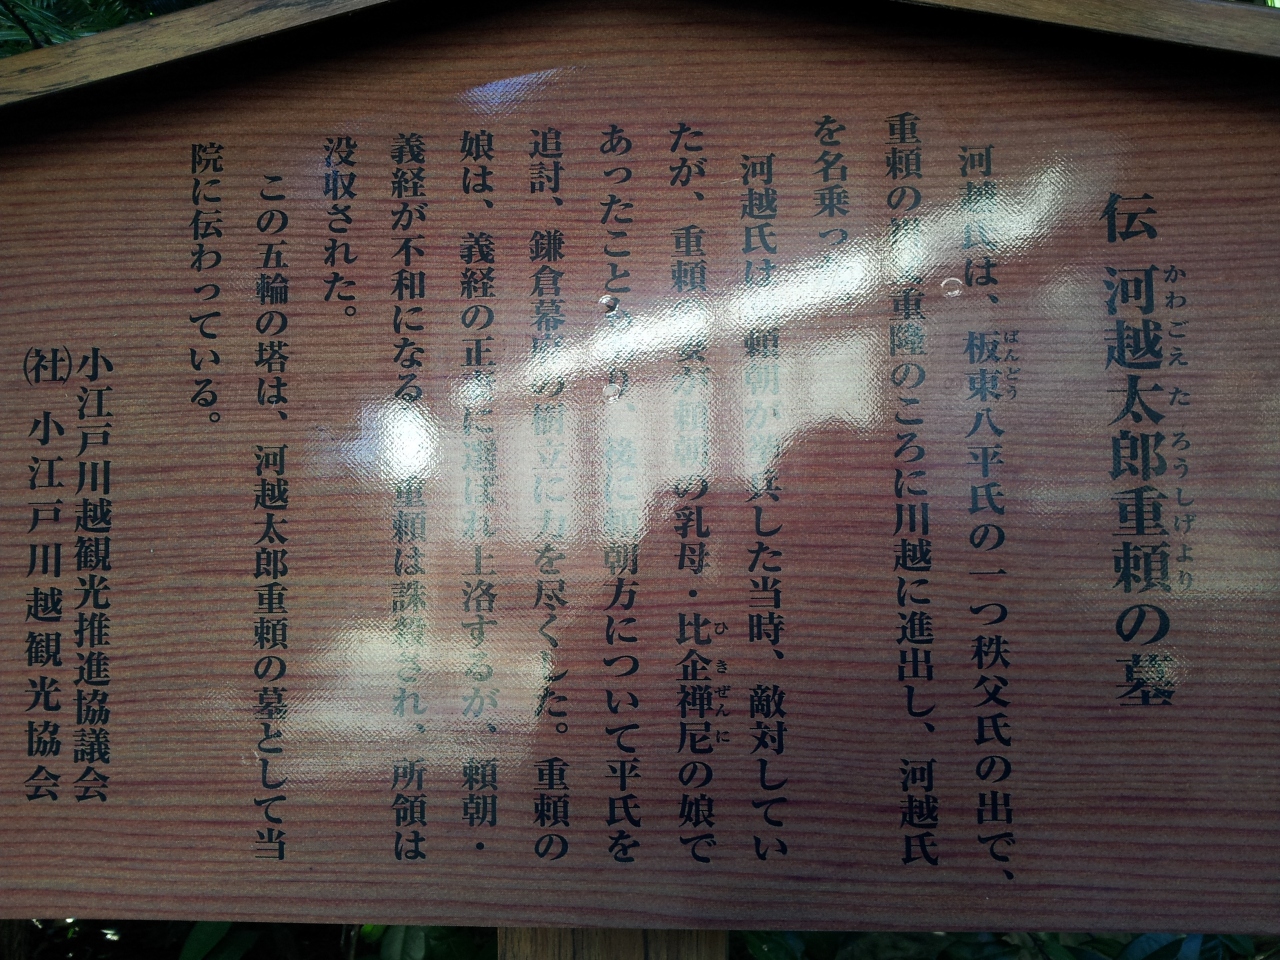 伝 河越太郎重頼の墓
かわごえ た ろうしげより
河越氏は、板東八平氏の一つ秩父氏の出で、
ばんどう
重頼の 重隆のころに川越に進出し、河越氏
を名乗っ
河越氏は 頼朝が 兵した当時、敵対してい
たが、重頼の が頼朝の乳母・比企禅尼の娘で
ひ き ぜんに
あったことも り、後に頼朝方について平氏を
追討、鎌倉幕府の樹立に力を尽くした。重頼の
娘は、義経の正妻に選ばれ上洛するが、頼朝・
義経が不和になる 重頼は誅殺され、所領は
没収された。
この五輪の塔は、河越太郎重頼の墓として当
院に伝わっている。
小江戸川越観光推進協議会
㈳ 小江戸川越観光協会